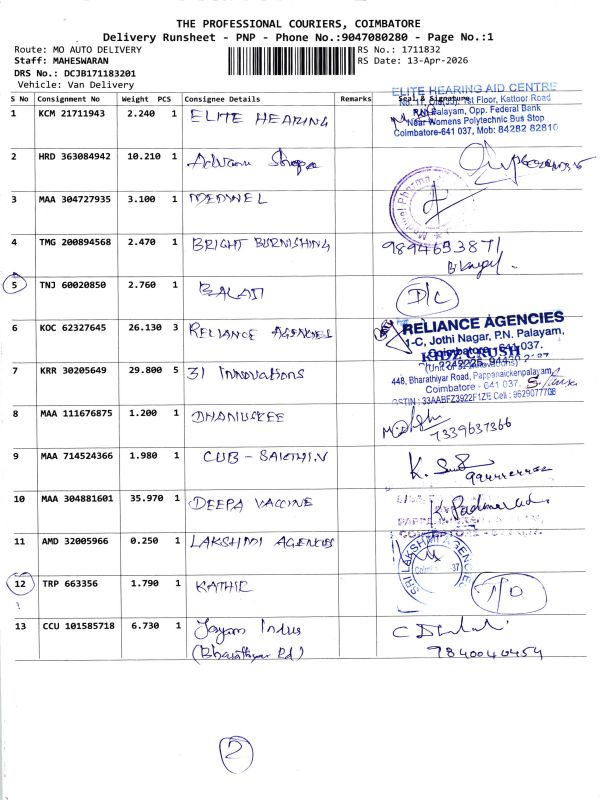 THE PROFESSIONAL COURIERS, COIMBATORE
Delivery Runsheet - PNP - Phone No.:9047080280 - Page No.:1
Route: MO AUTO DELIVERY RS No.: 1711832
Staff: MAHESWARAN RS Date: 13-Apr-2026
DRS No.: DCJB171183201
Vehicle: Van Delivery
S No Consignment No Weight PCS Consignee Details Remarks Seal & Signature
ELITE HEARING AID CENTRE
1st Floor, Kattoor Road
1 KCM 21711943 2.240 1 ELITE HEARING
P.N.Palayam, Opp. Federal Bank
Near Womens Polytechnic Bus Stop
Coimbatore-641 037, Mob: 84282 82810
2 HRD 363084942 10.210 1
3 MAA 304727935 3.100 1 MEDWEL
4 TMG 200894568 2.470 1 BRIGHT BURNISHING 9894693871
5 TNJ 60020850 2.760 1 BALAJI D/C
6 KOC 62327645 26.130 3 RELIANCE AGENCIES
RELIANCE AGENCIES
1-C, Jothi Nagar, P.N. Palayam,
Coimbatore - 641 037.
KIDZ CRUSH
7 KRR 30205649 29.800 5 31 Innovations
(Unit of 31 Innovations)
448, Bharathiyar Road, Pappanaickenpalayam,
Coimbatore - 641 037.
GSTIN : 33AABFZ3922F1ZE Cell : 9629077708
8 MAA 111676875 1.200 1 DHANUSREE 7339637366
9 MAA 714524366 1.980 1 CUB - SAKTHI.V
10 MAA 304881601 35.970 1 DEEPA VACCINE K. Padmavad
11 AMD 32005966 0.250 1 LAKSHMI AGENCIES
SRI LAKSHMI AGENCIES
12 TRP 663356 1.790 1 KATHIR
13 CCU 101585718 6.730 1 Jayam Indus
(Bharathiyar Rd) 9840040454
2